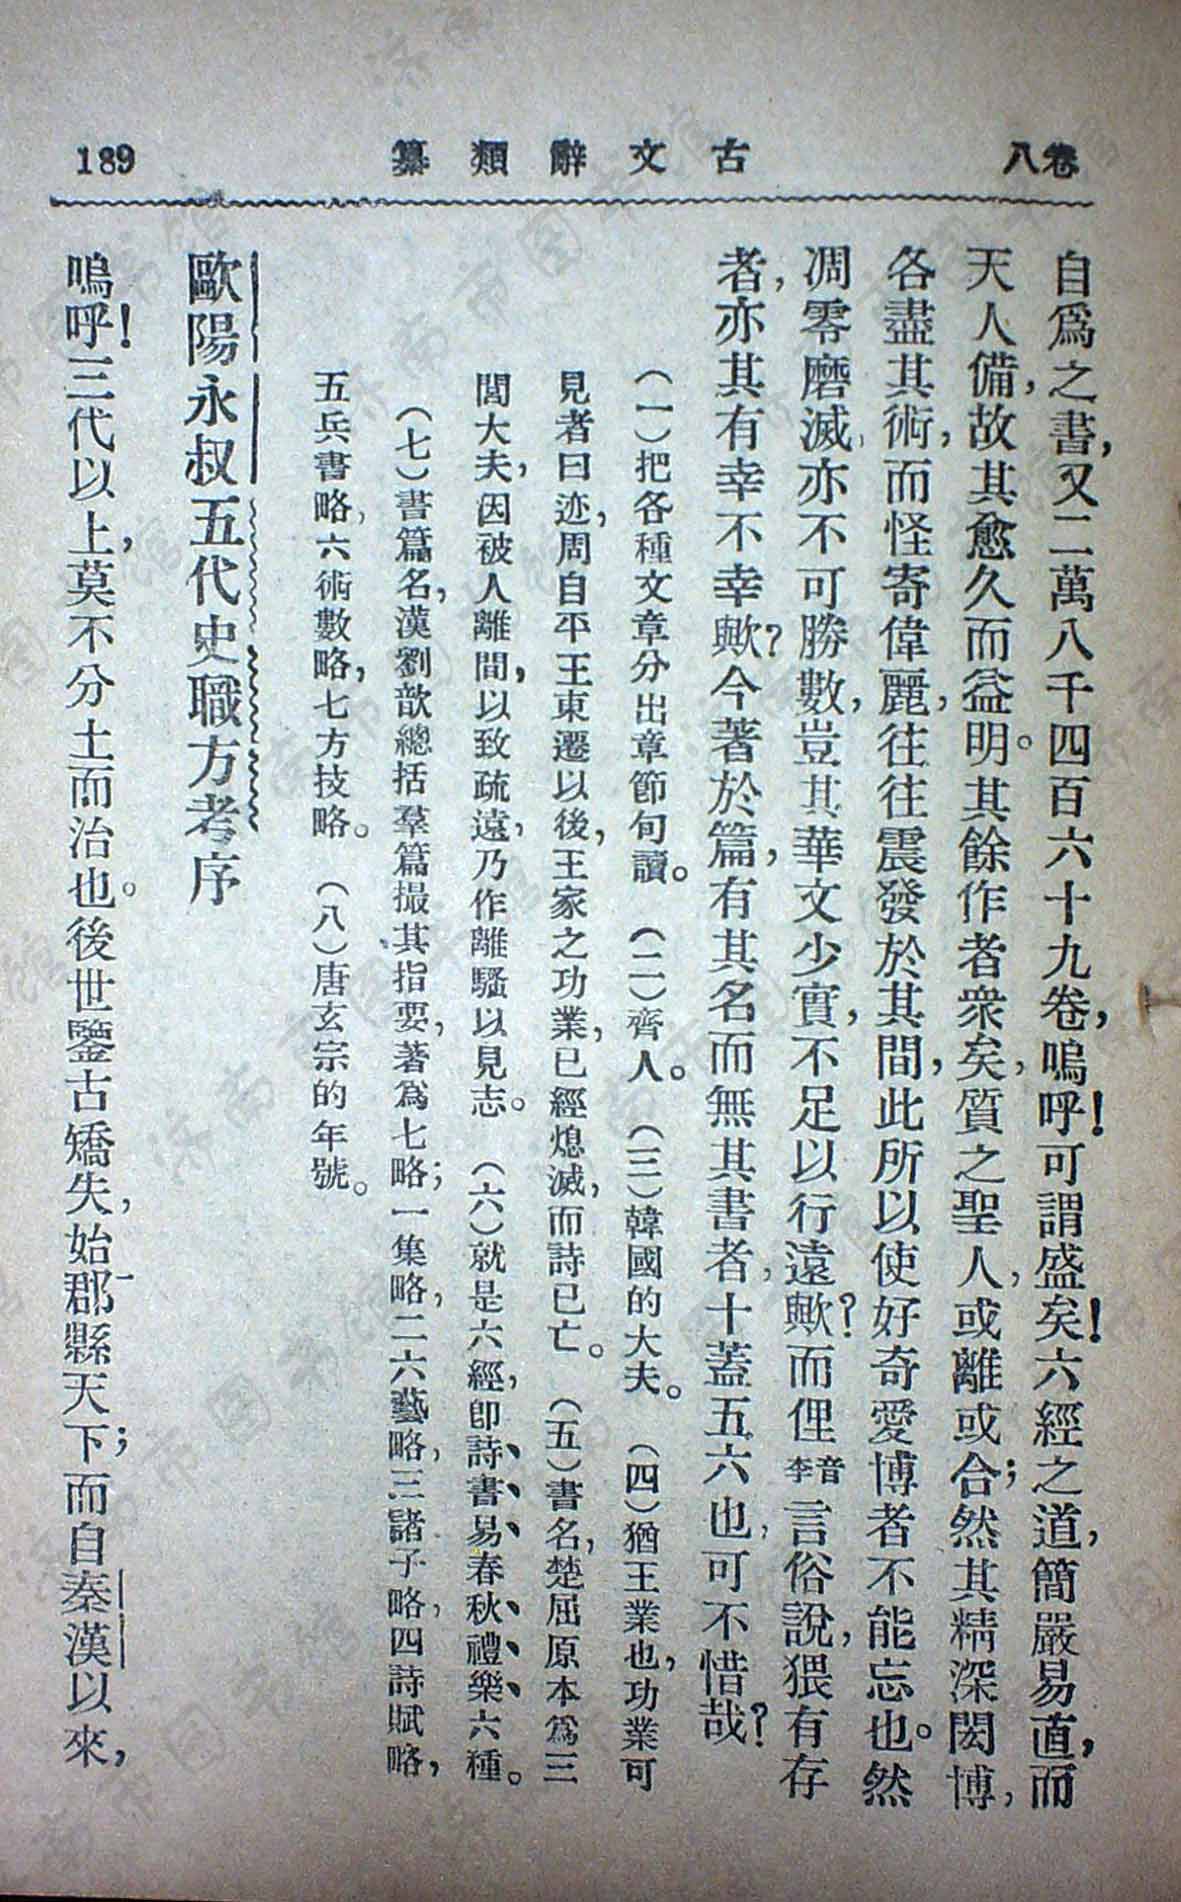 卷八
古文辭類纂
189
自爲之書，又二萬八千四百六十九卷，嗚呼！可謂盛矣！六經之道，簡嚴易直，而
天人備，故其愈久而益明。其餘作者衆矣，質之聖人，或離或合；然其精深閎博，
各盡其術，而怪奇偉麗，往往震發於其間，此所以使好奇愛博者不能忘也。然
凋零磨滅，亦不可勝數，豈其華文少實，不足以行遠歟？而俚音李言俗說，猥有存
者，亦其有幸不幸歟？今著於篇，有其名而無其書者，十蓋五六也，可不惜哉？
（一）把各種文章分出章節句讀。（二）齊人。（三）韓國的大夫。（四）猶王業也，功業可
見者曰迹，周自平王東遷以後，王家之功業，已經熄滅，而詩已亡。（五）書名，楚屈原本爲三
閭大夫，因被人離間，以致疏遠，乃作離騷以見志。（六）就是六經，卽詩、書、易、春秋、禮、樂、六種。
（七）書篇名，漢劉歆總括羣篇撮其指要，著爲七略；一集略，二六藝略，三諸子略，四詩賦略，
五兵書略，六術數略，七方技略。（八）唐玄宗的年號。
歐陽永叔五代史職方考序
嗚呼！三代以上，莫不分土而治也。後世鑒古矯失，始郡縣天下；而自秦漢以來，